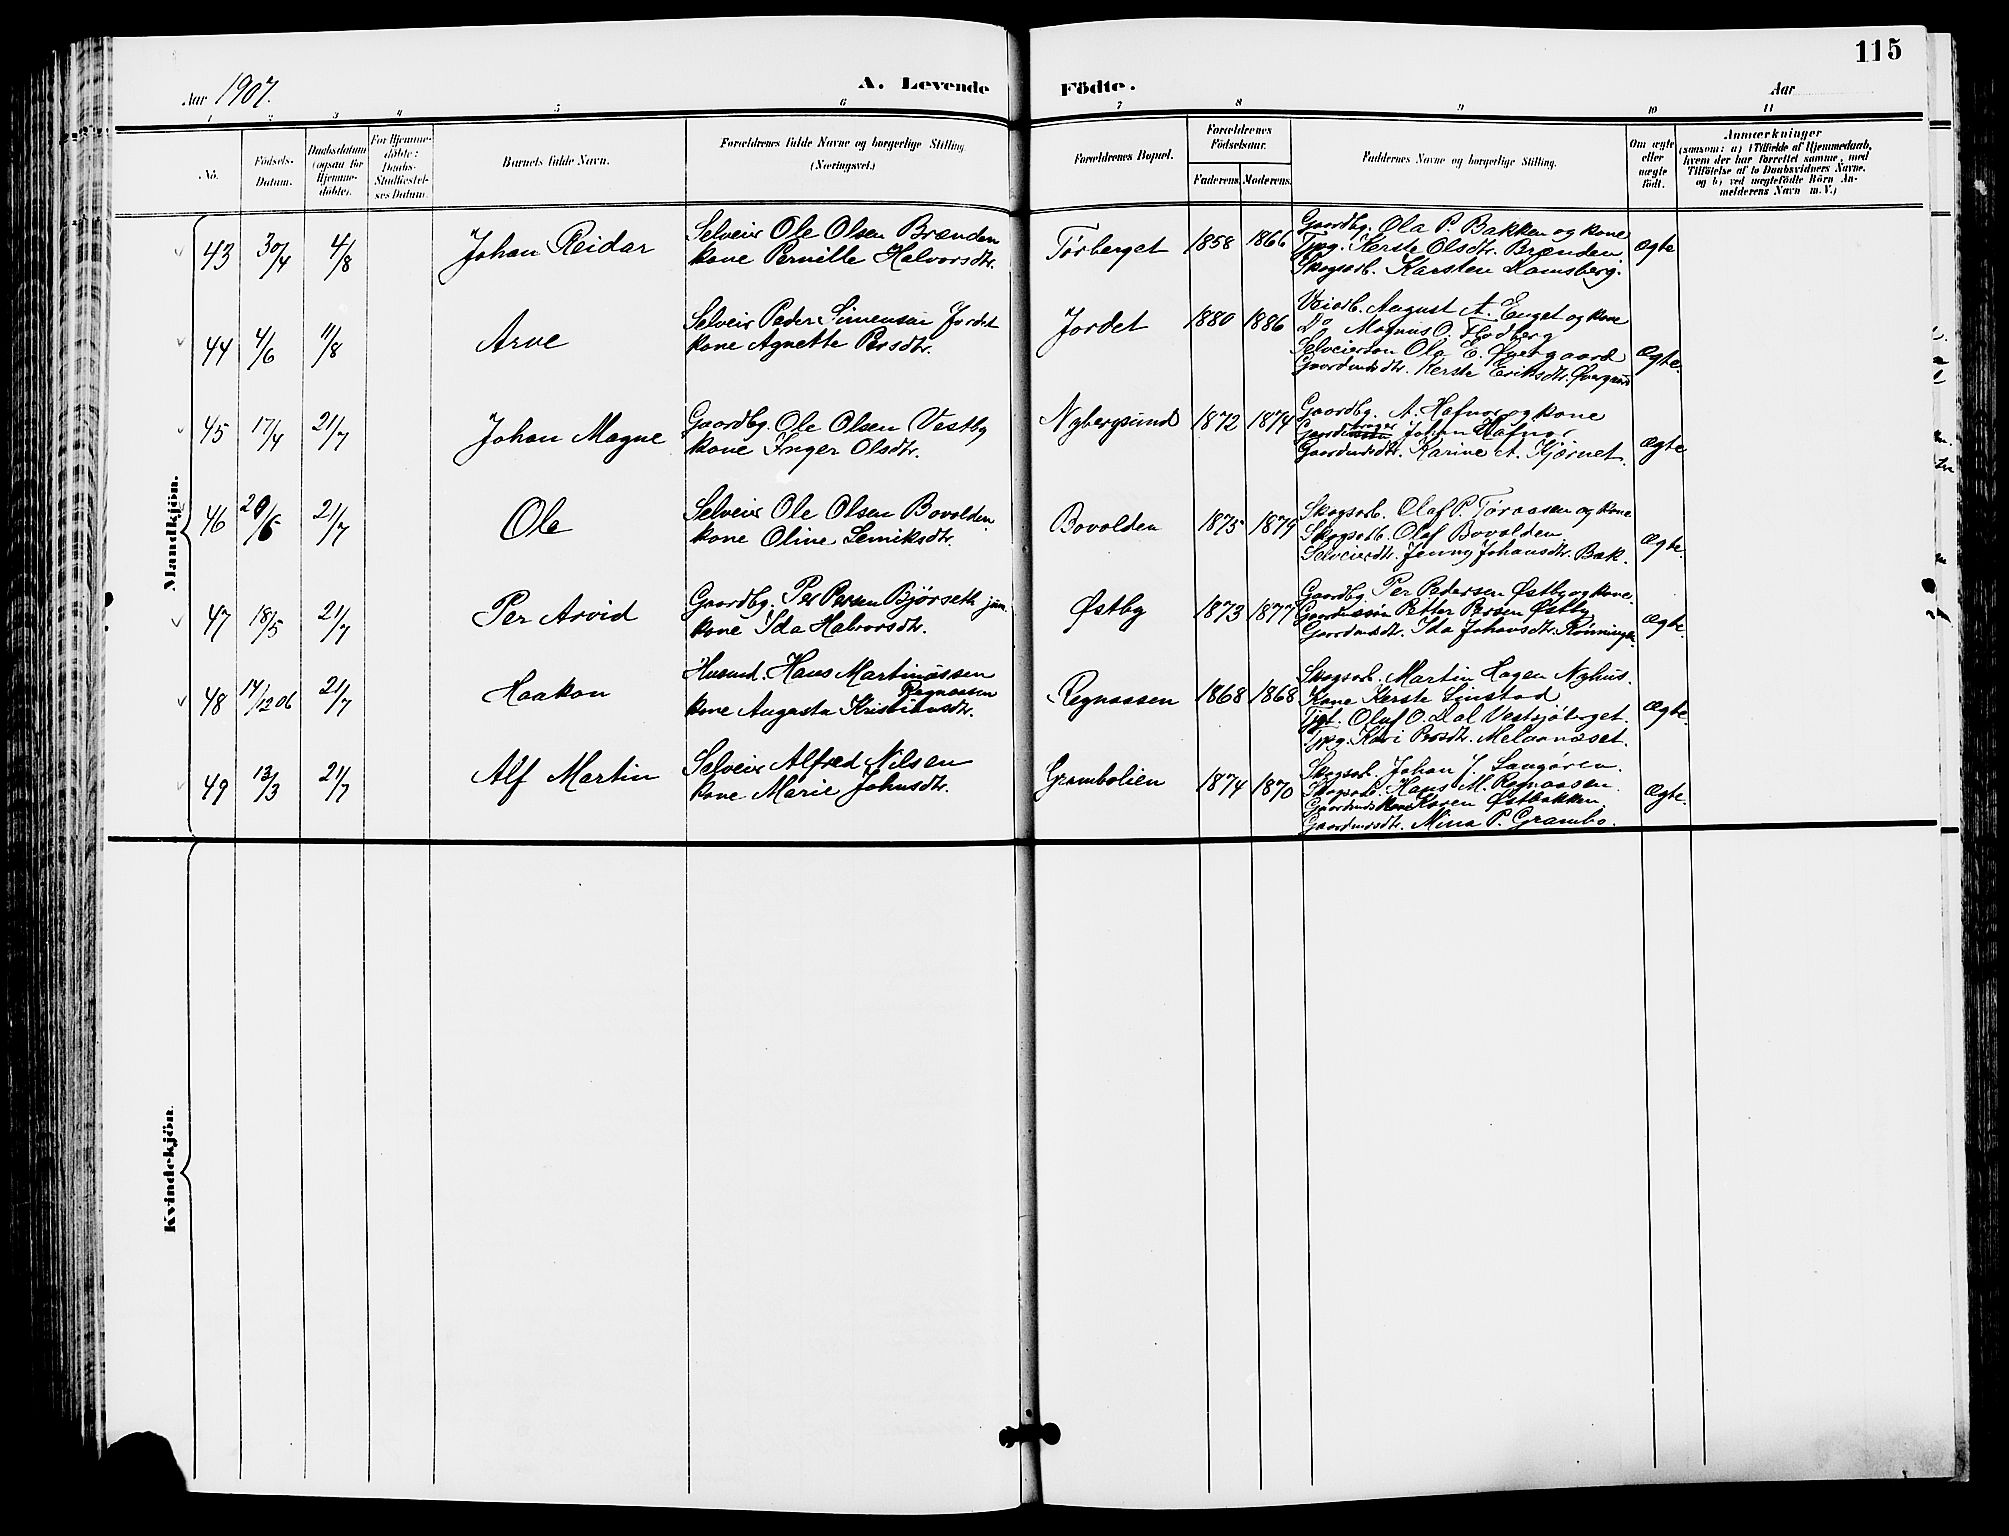 115
Aar 1907. A. Levende Födte. Aar
1 2 3 4 5 6 7 8 9 10 11
No.
Födsels-
Datum.
Daabsdatum
(ogsaa for
Hjemme-
døbte).
For Hjemme-
døbte:
Daabs-
Stadfæstel-
ses Datum.
Barnets fulde Navn.
Forældrenes fulde Navne og borgerlige Stilling
(Næringsvei.)
Forældrenes Bopæl.
Forældrenes
Födselsaar.
Faderens. Moderens.
Faddernes Navne og borgerlige Stilling.
Om ægte
eller
uægte
født.
Anmærkninger
(saasom: a) i Tilfælde af Hjemmedaab,
hvem der har forrettet samme, med
Tilføielse af to Daabsvidners Navne,
og b) ved uægtefødte Börn An-
melderens Navn m. V.)
Mandkjön.
43 30/4 4/8 Johan Reidar
Selveier Ole Olsen Brænden
kone Pernille Halvorsdtr.
Törberget 1858 1866
Gaardbg. Ola P. Bakken og kone
Tjpg. Kerste Olsdtr. Brænden.
Skogsarb. Karsten Kamsberg.
ægte
44 4/6 11/8 Arve
Selveier Peder Simensen Jordet
kone Agnette Persdtr.
Jordet 1880 1886
Veiarb. August A. Enget og kone
Do Magnus O. Flodberg
Selveiersøn Ola E. Øvergaard
Gaardmdsdtr. Kerste Eriksdtr. Øvergaard
Ægte.
45 17/4 21/7 Johan Magne
Gaardbg. Ole Olsen Vestby
kone Inger Olsdtr.
Nybergsund 1872 1874
Gaardbg. A. Hafnor og kone
Gaardbruger Johan Hafnor
Gaardmdsdtr. Karine A. Kjørnet.
Ægte
46 29/5 21/7 Ole
Selveier Ole Olsen Bovolden
kone Oline Lemiksdtr.
Bovolden 1875 1879
Skogsarb. Olaf P. Töraasen og kone
Skogsarb. Olaf Bovolden
Selveierdtr. Jenny Johansdtr. Bak.
Ægte.
47 18/5 21/7 Per Arvid
Gaardbg. Per Persen Bjørseth jun.
kone Ida Halvorsdtr.
Østby 1873 1877
Gaardbg. Per Pedersen Østby og kone.
Gaardmssøn Petter Persen Østby
Gaardmdsdtr. Ida Johansdtr. Rønningen.
Ægte.
48 14/12 06 21/7 Haakon
Husmd. Hans Martinussen
Regnaasen
kone Augusta Kristiansdtr.
Regnaasen 1868 1868
Skogsarb. Martin Hagen Nyhus.
Kone Kerste Linstad
Tjgt. Oluf O. Dal Vestsjöberget.
Tjpg. Kari Persdtr. Melaanæset.
Ægte.
49 13/3 21/7 Alf Martin
Selveier Alfred Nilsen
kone Marie Johnsdtr.
Grambolien 1874 1870
Skogsarb. Johan J. Langören.
Skogsarb. Hans M. Regnaasen.
Gaardmdskone Karen Østbakken.
Gaardmdsdtr. Mina P. Grambo.
Ægte.
Kvindekjön.